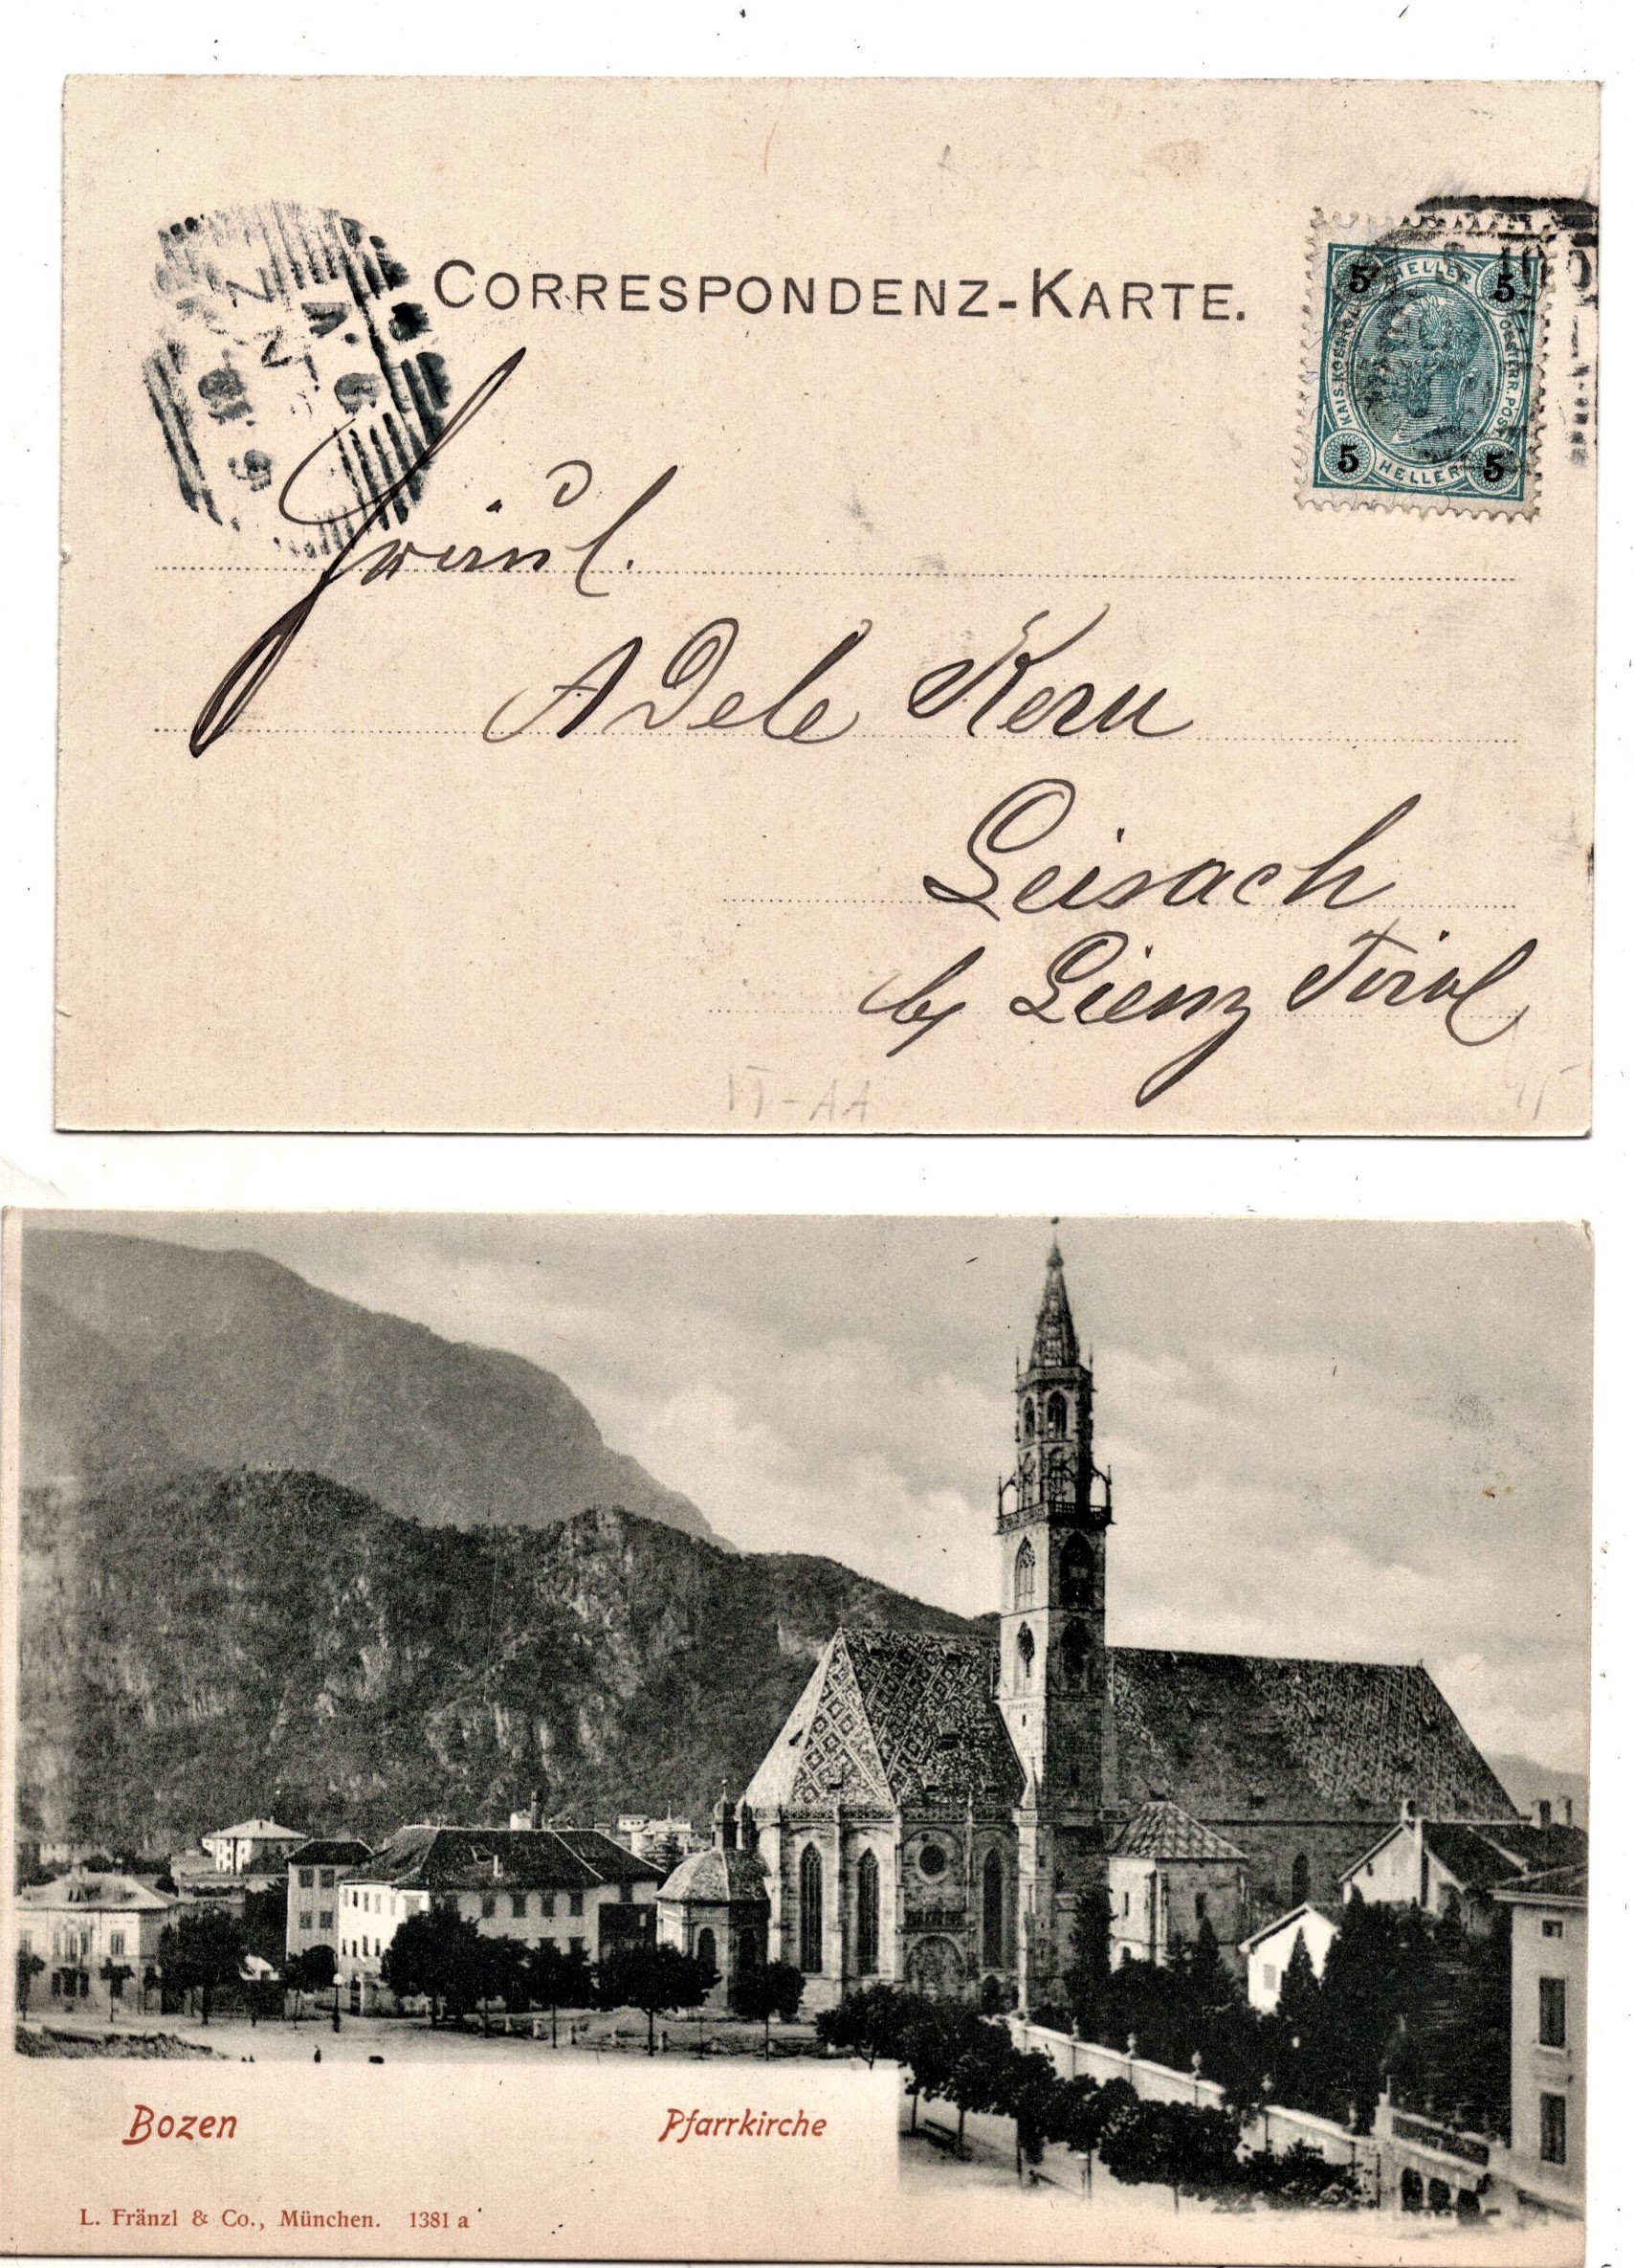 CORRESPONDENZ-KARTE.
5 HELLER 5
KAIS.KOEN. OESTERR.POST
5 HELLER 5
Fräul.
Adele Kern
Leisach
by Lienz Tirol
IT-AA
45
Bozen Pfarrkirche
L. Fränzl & Co., München. 1381 a